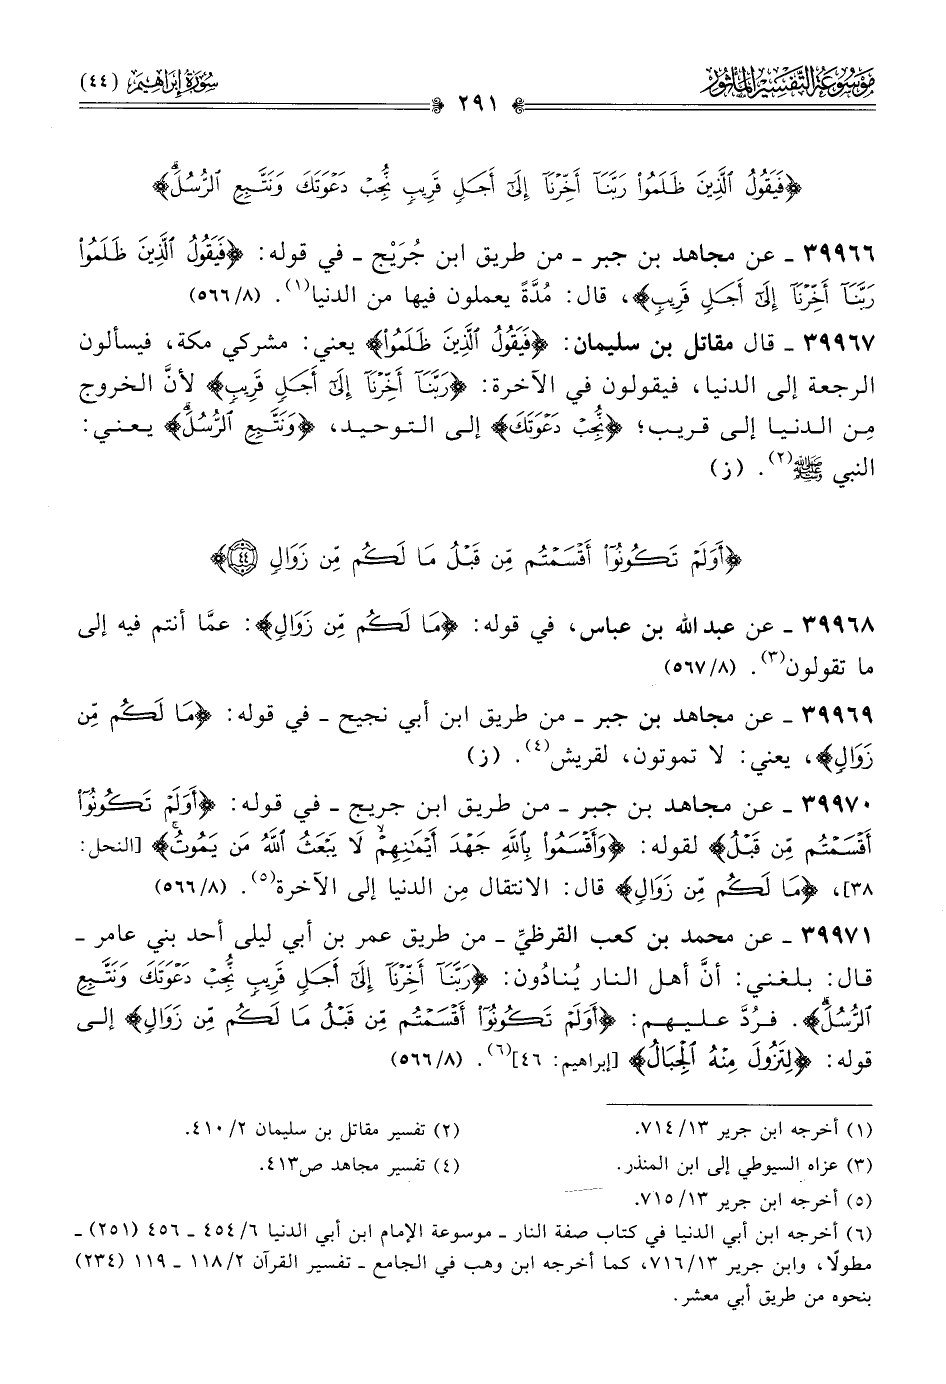 موسوعة التفسير المأثور
سورة إبراهيم (٤٤)
٢٩١
﴿فَيَقُولُ ٱلَّذِينَ ظَلَمُوا۟ رَبَّنَآ أَخِّرْنَآ إِلَىٰٓ أَجَلٍ قَرِيبٍ نُّجِبْ دَعْوَتَكَ وَنَتَّبِعِ ٱلرُّسُلَ ۗ﴾
٣٩٩٦٦ ـ عن مجاهد بن جبر ـ من طريق ابن جُرَيْج ـ في قوله: ﴿فَيَقُولُ ٱلَّذِينَ ظَلَمُوا۟
رَبَّنَآ أَخِّرْنَآ إِلَىٰٓ أَجَلٍ قَرِيبٍ﴾، قال: مُدَّةً يعملون فيها من الدنيا(١). (٥٦٦/٨)
٣٩٩٦٧ ـ قال مقاتل بن سليمان: ﴿فَيَقُولُ ٱلَّذِينَ ظَلَمُوا۟﴾ يعني: مشركي مكة، فيسألون
الرجعة إلى الدنيا، فيقولون في الآخرة: ﴿رَبَّنَآ أَخِّرْنَآ إِلَىٰٓ أَجَلٍ قَرِيبٍ﴾ لأنَّ الخروج
مِن الدنيا إلى قريب؛ ﴿نُّجِبْ دَعْوَتَكَ﴾ إلى التوحيد، ﴿وَنَتَّبِعِ ٱلرُّسُلَ ۗ﴾ يعني:
النبي ﷺ(٢). (ز)
﴿أَوَلَمْ تَكُونُوٓا۟ أَقْسَمْتُم مِّن قَبْلُ مَا لَكُم مِّن زَوَالٍ ٤٤﴾
٣٩٩٦٨ ـ عن عبد الله بن عباس، في قوله: ﴿مَا لَكُم مِّن زَوَالٍ﴾: عمَّا أنتم فيه إلى
ما تقولون(٣). (٥٦٧/٨)
٣٩٩٦٩ ـ عن مجاهد بن جبر ـ من طريق ابن أبي نجيح ـ في قوله: ﴿مَا لَكُم مِّن
زَوَالٍ﴾، يعني: لا تموتون، لقريش(٤). (ز)
٣٩٩٧٠ ـ عن مجاهد بن جبر ـ من طريق ابن جريج ـ في قوله: ﴿أَوَلَمْ تَكُونُوٓا۟
أَقْسَمْتُم مِّن قَبْلُ﴾ لقوله: ﴿وَأَقْسَمُوا۟ بِٱللَّهِ جَهْدَ أَيْمَٰنِهِمْ ۙ لَا يَبْعَثُ ٱللَّهُ مَن يَمُوتُ ۚ﴾ [النحل:
٣٨]، ﴿مَا لَكُم مِّن زَوَالٍ﴾ قال: الانتقال مِن الدنيا إلى الآخرة(٥). (٥٦٦/٨)
٣٩٩٧١ ـ عن محمد بن كعب القرظيِّ ـ من طريق عمر بن أبي ليلى أحد بني عامر ـ
قال: بلغني: أنَّ أهل النار يُنادُون: ﴿رَبَّنَآ أَخِّرْنَآ إِلَىٰٓ أَجَلٍ قَرِيبٍ نُّجِبْ دَعْوَتَكَ وَنَتَّبِعِ
ٱلرُّسُلَ ۗ﴾. فرُدَّ عليهم: ﴿أَوَلَمْ تَكُونُوٓا۟ أَقْسَمْتُم مِّن قَبْلُ مَا لَكُم مِّن زَوَالٍ﴾ إلى
قوله: ﴿لِتَزُولَ مِنْهُ ٱلْجِبَالُ﴾ [إبراهيم: ٤٦](٦). (٥٦٦/٨)
(١) أخرجه ابن جرير ٧١٤/١٣.
(٢) تفسير مقاتل بن سليمان ٤١٠/٢.
(٣) عزاه السيوطي إلى ابن المنذر.
(٤) تفسير مجاهد ص٤١٣.
(٥) أخرجه ابن جرير ٧١٥/١٣.
(٦) أخرجه ابن أبي الدنيا في كتاب صفة النار ـ موسوعة الإمام ابن أبي الدنيا ٤٥٤/٦ ـ ٤٥٦ (٢٥١) ـ
مطولًا، وابن جرير ٧١٦/١٣، كما أخرجه ابن وهب في الجامع ـ تفسير القرآن ١١٨/٢ ـ ١١٩ (٢٣٤)
بنحوه من طريق أبي معشر.